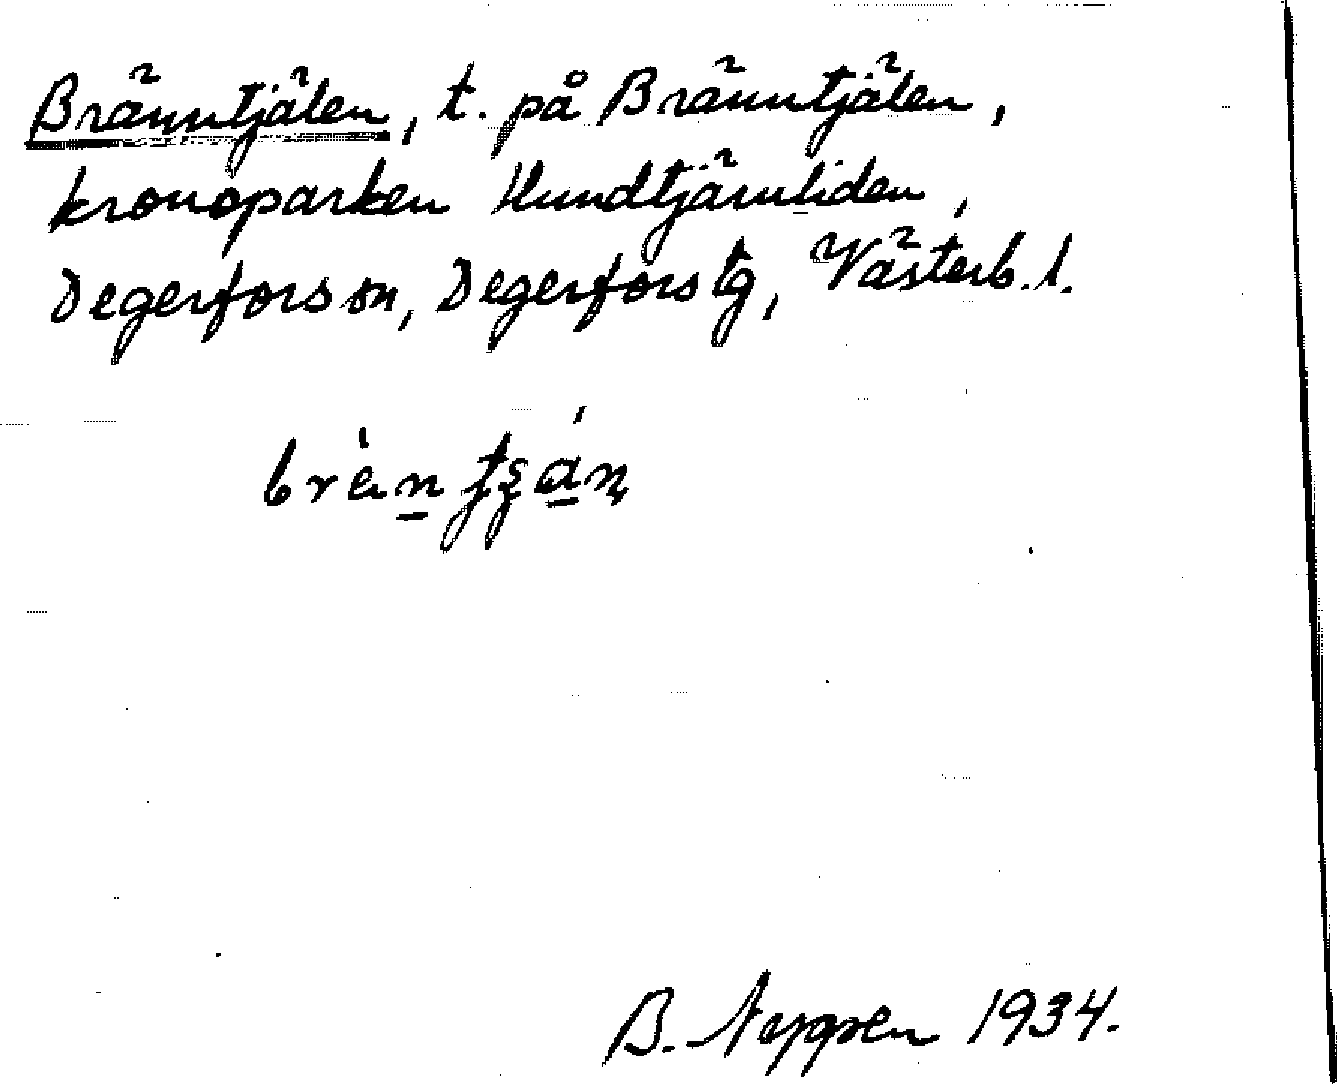 Bränntjälen, t. på Bränntjälen,
kronoparken Hundtjärnliden,
Degerfors sn, Degerfors tg, Västerb. l.
B. 1934.